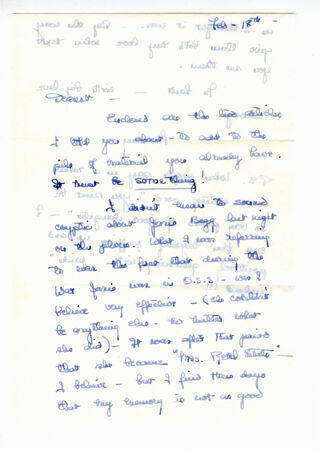 Feb - 18th
Dearest -
Enclosed are the two articles
I told you about - to add to the
pile of material you already have.
It must be something!
I didn't mean to sound
cryptic about Janis Begg but right
on the phone. What I was referring
to was the fact that during the
War Janis was in O.S.S - was I
believe very effective - (she couldn't
be anything else - no matter what
she did) - It was after that period
that she became "Mrs.
I believe - but I find these days
that my memory is not as good